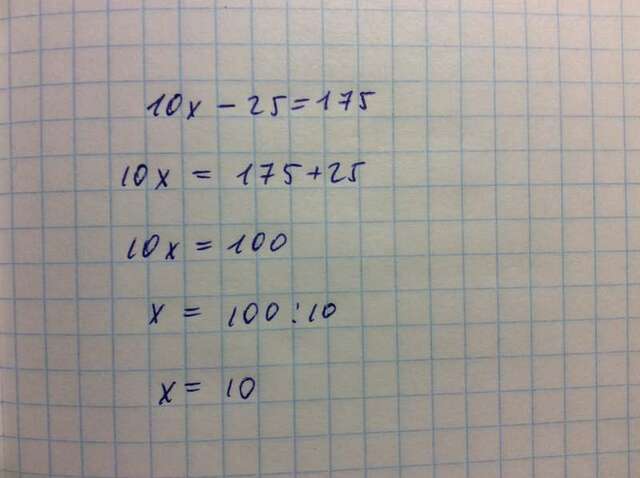 10x - 25 = 175
10x = 175 + 25
10x = 100
x = 100 : 10
x = 10